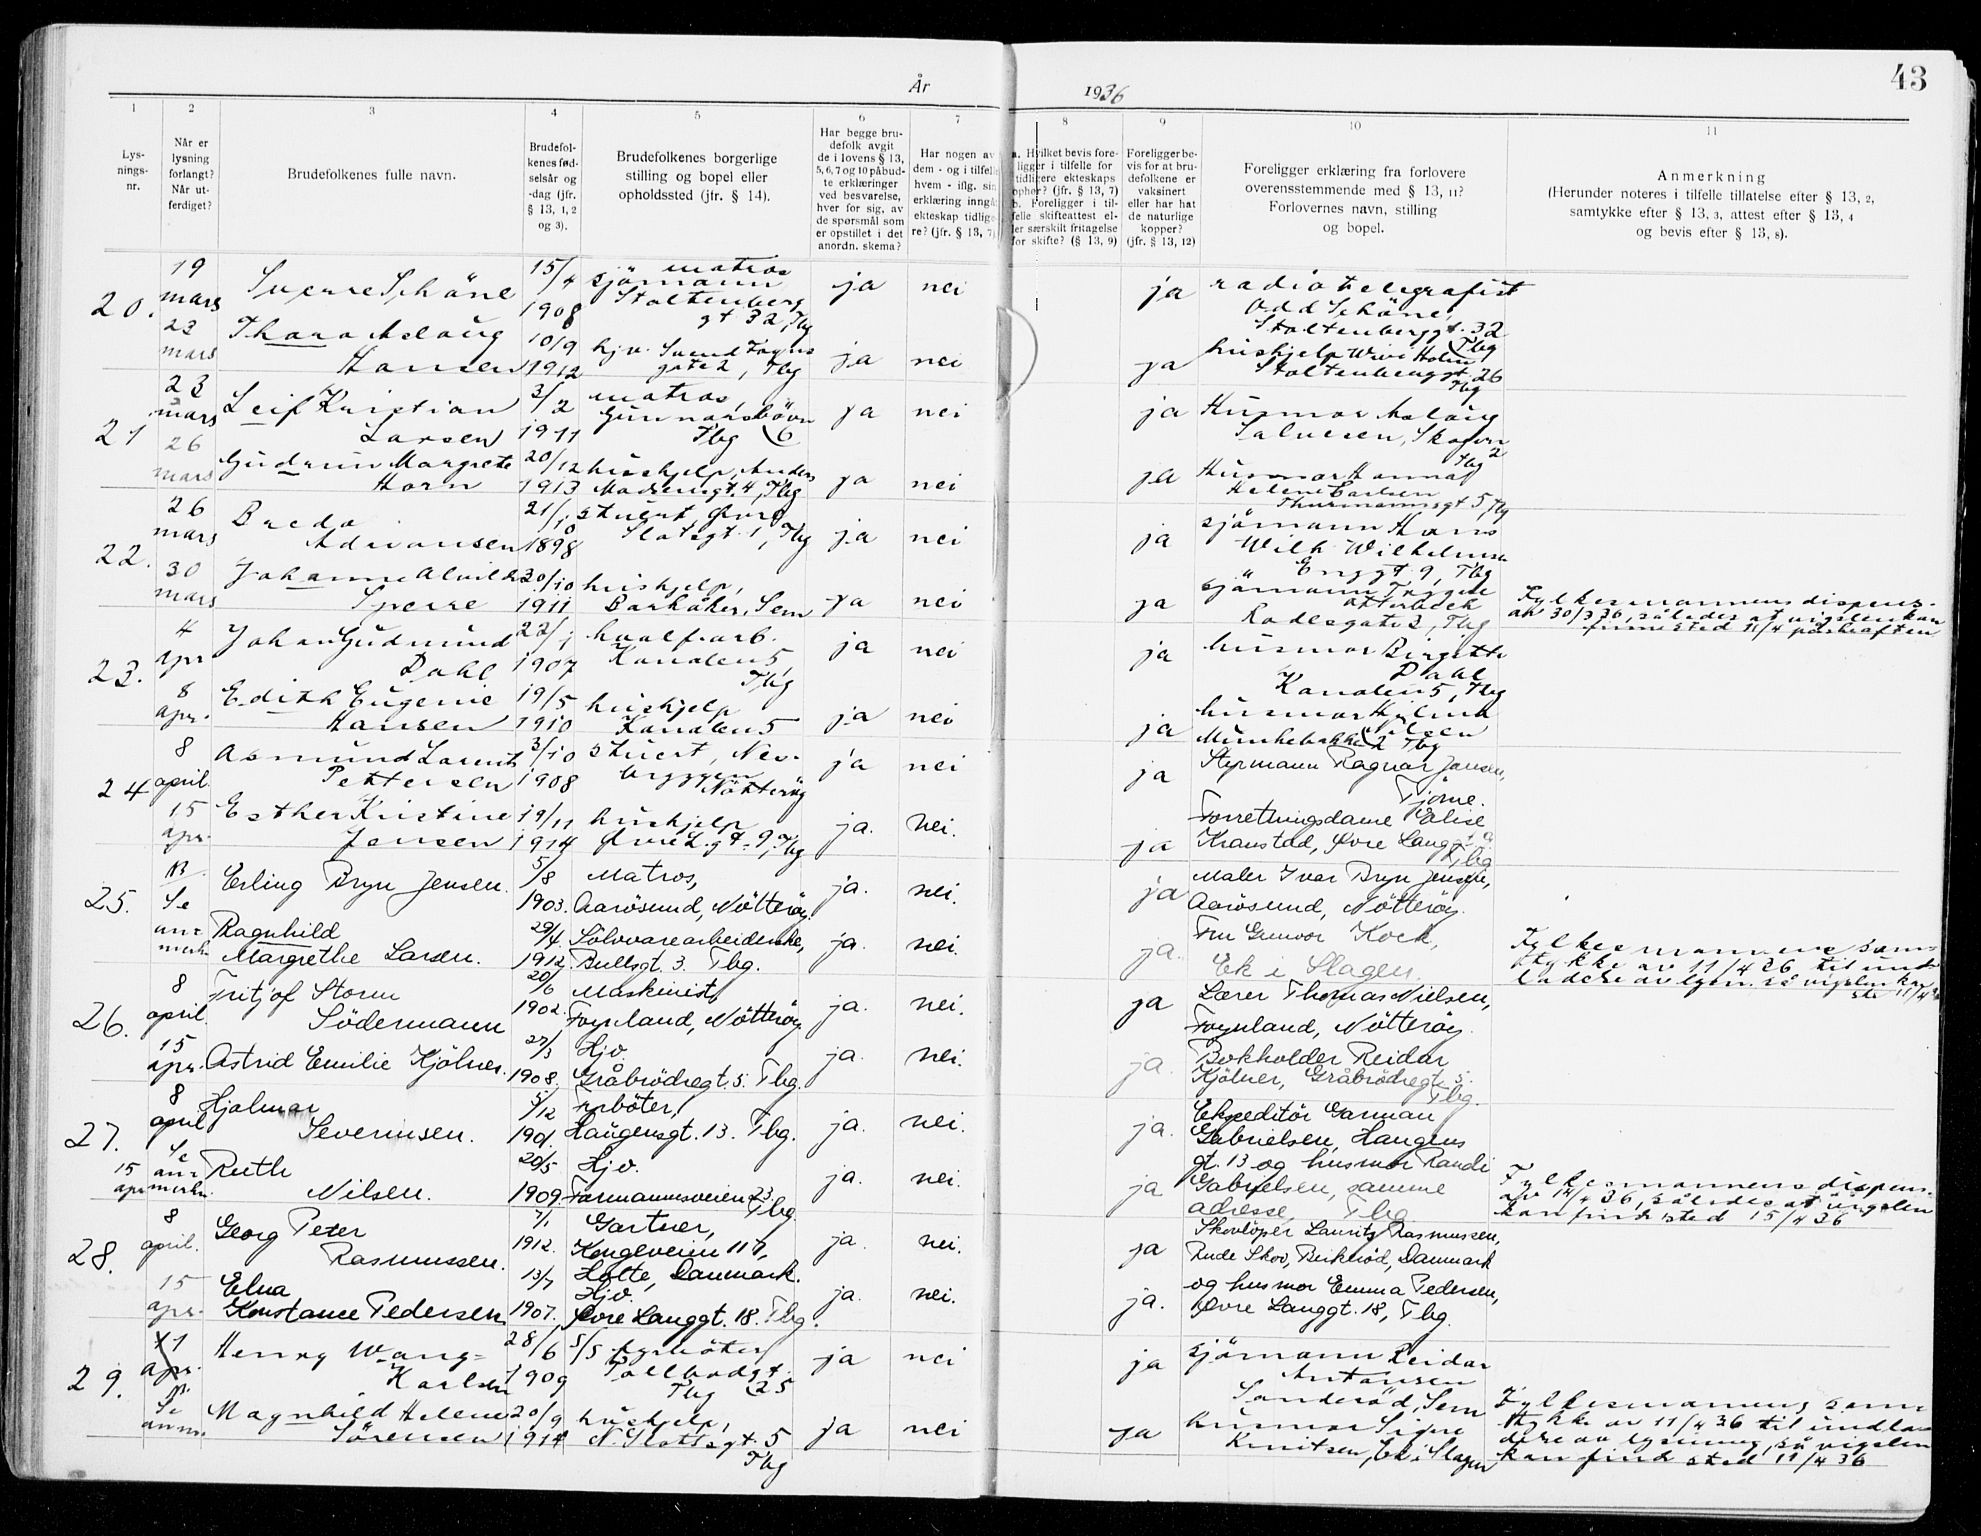 År 1936
43
1
2
3
4
5
6
7
8
9
10
11
Lys-
nings-
nr.
Når er
lysning
forlangt?
Når ut-
ferdiget?
Brudefolkenes fulle navn.
Brudefol-
kenes fød-
selsår og
-dag (jfr.
§ 13, 1, 2
og 3).
Brudefolkenes borgerlige
stilling og bopel eller
opholdssted (jfr. § 14).
Har begge bru-
defolk avgit
de i lovens § 13,
5, 6, 7 og 10 påbud-
te erklæringer
ved besvarelse,
hver for sig, av
de spørsmål som
er opstillet i det
anordn. skema?
Har nogen av
dem - og i tilfelle
hvem - iflg. sin
erklæring inngåt
ekteskap tidlige-
re? (jfr. § 13, 7)
a. Hvilket bevis fore-
ligger i tilfelle for
tidligere ekteskaps
ophør? (jfr. § 13, 7)
b. Foreligger i til-
felle skifteattest el-
ler særskilt fritagelse
for skifte? (§ 13, 9)
Foreligger be-
vis for at bru-
defolkene er
vaksinert
eller har hat
de naturlige
kopper?
(jfr. § 13, 12)
Foreligger erklæring fra forlovere
overensstemmende med § 13, 11?
Forlovernes navn, stilling
og bopel.
Anmerkning
(Herunder noteres i tilfelle tillatelse efter § 13, 2,
samtykke efter § 13, 3, attest efter § 13, 4
og bevis efter § 13, 8).
20.
19
mars
Sverre Schöne
15/4
1908
matros
sjömann
Stoltenberg
gt 32, Tbg
ja
nei
ja
radiotelegrafist
Odd Schöne,
Stoltenberggt. 32
Tbg
23
mars
Thora Aslaug
Hansen
10/9
1912
hjv. Svend Foyns
gate 2, Tbg
ja
nei
ja
hushjelp Holm
Stoltenberggt. 26
Tbg
21
23
mars
Leif Kristian
Larsen
3/2
1911
matros,
Gunnarsbövn
Tbg 6
ja
nei
ja
Husmor Aslaug
Salvesen,
Tbg 2
26
mars
Gudrun Margrete
Horn
20/12
1913
hushjelp, Anders
Madsensgt. 4, Tbg
ja
nei
ja
Husmor Hanna
Helene Carlsen
Thurmannsgt 5, Tbg
22.
26
mars
Bredo
Adriansen
21/10
1898
stuert Övre
Slotsgt. 1, Tbg
ja
nei
ja
sjömann Hans
Wilh. Wilhelmsen
Enggt 9, Tbg
30
mars
Johanne Alvilde
Sperre
30/10
1911
hushjelp,
Barkåker, Sem
ja
nei
ja
sjömann Trygve
Otterbeck
Rodesgate 2, Tbg
Fylkesmannens dispens.
av 30/3 36, således at vigslen kan
finne sted 11/4 påskeaften
23.
4
apr
Johan Gudmund
Dahl
22/1
1907
hvalf.arb.
Kanalen 5,
Tbg
ja
nei
ja
husmor Birgitte
Dahl
Kanalen 5, Tbg
8
apr.
Edith Eugenie
Hansen
19/5
1910
hushjelp
Kanalen 5
ja
nei
ja
husmor
Nilsen
Munkebakken 2 Tbg
24
8
april.
Asmund Lorentz
Pettersen
3/10
1908
stuert, Nes-
bryggen
Nötteröy
ja
nei
ja
Styrmann Ragnar Jansen,
Tjöme.
15
apr.
Esther Kristine
Jensen
19/11
1914
hushjelp
Övre L.gt. 9, Tbg
ja.
nei.
ja
Forretningsdame Elise
Kranstad, Övre Langgt. 9
Tbg
25.
11.
Se
an=
merk.
Erling Bryn Jensen.
5/8
1903.
Matros,
Aarösund, Nötteröy.
ja.
nei.
ja
Maler Ivar Bryn Jensen,
Aarösund, Nötteröy.
Ragnhild
Margrethe Larsen.
29/4
1912.
Sölvvarearbeiderske,
Bullsgt. 3. Tbg.
ja.
nei.
ja.
Fru Gunvor Kock,
Ek i Slagen.
Fylkesmannens sam-
tykke av 11/4 36 til und-
ladelse av lysn. så vigslen kan
11/4 36
26.
8
april.
Fritjof Storm
Södermann
20/6
1902.
Maskinist,
Foynland, Nötteröy
ja.
nei.
ja
Lærer Thomas Nielsen,
Foynland, Nötteröy.
15
apr.
Astrid Emilie Kjölner.
27/3
1908.
Hjv.
Gråbrödregt. 5. Tbg.
ja.
nei.
ja.
Bokholder Reidar
Kjölner, Gråbrödregt. 5.
Tbg.
27.
8
april
Hjalmar
Severinsen.
5/12
1901.
Fyrböter,
Haugensgt. 13. Tbg.
ja.
nei.
ja.
Ekspeditör Garman
Gabrielsen, Haugens
gt. 13 og husmor Randi
15
apr
Se
an=
merkn.
Ruth
Nilsen.
20/5
1909.
Hjv.
Farmannsveien 23.
Tbg.
ja.
nei.
ja
Gabrielsen, samme
adresse Tbg
Fylkesmannens dispens.
av 14/4 36, således at vigslen
kan finde sted 15/4 36
28.
8
april.
Georg Peter
Rasmussen.
7/1
1912.
Gartner,
Kongeveien 117,
Holte, Danmark.
ja.
nei.
ja
Skovlöper Laurits Rasmussen,
Rude Skov, Birkeröd, Danmark
15
apr.
Elna
Konstance Pedersen
13/7
1907.
Hjv.
Övre Langgt. 18. Tbg.
ja.
nei.
ja.
og husmor Emma Pedersen,
Övre Langgt. 18, Tbg.
29.
11
apr.
Henry Wang=
Karlsen
28/6
1909
fyrböter
Tollbodgt.
Tbg 25
ja
nei
ja
sjömann Reidar
Antonsen
Sanderöd, Sem
Se
anm.
Magnhild Helene
Sörensen
20/9
1914
hushjelp,
N. Slottsgt. 5
Tbg
ja
nei
ja
husmor Signe
Knutsen, Ek i Slagen
Fylkesmannens sam-
tykke av 11/4 36 til undla-
delse av lysning, så vigslen
kan finde sted 11/4 36